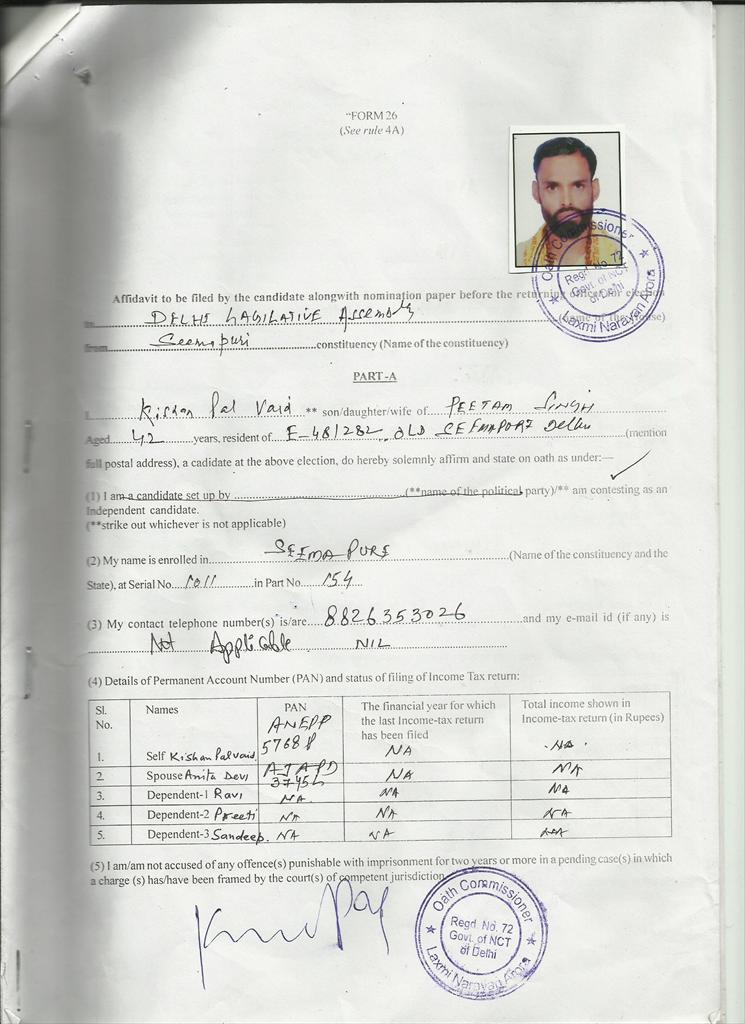 "FORM 26
(See rule 4A)
Oath Commissioner
Regd. No. 72
Govt. of NCT
of Delhi
Laxmi Narayan Arora
Affidavit to be filed by the candidate alongwith nomination paper before the returning officer for election
to DELHI LAGILATIVE Assembly (name of the House)
from Seemapuri constituency (Name of the constituency)
PART-A
I Kishan Pal Vaid ** son/daughter/wife of PEETAM SINGH
Aged 42 years, resident of E-48/282 OLD SEEMAPURI Delhi (mention
full postal address), a cadidate at the above election, do hereby solemnly affirm and state on oath as under:—
(1) I am a candidate set up by (**name of the political party)/** am contesting as an
Independent candidate.
(**strike out whichever is not applicable)
(2) My name is enrolled in SEEMA PURI (Name of the constituency and the
State), at Serial No. 1011 in Part No. 154
(3) My contact telephone number(s) is/are 8826353026 and my e-mail id (if any) is
Not Applicable NIL
(4) Details of Permanent Account Number (PAN) and status of filing of Income Tax return:
Sl. No. Names PAN The financial year for which the last Income-tax return has been filed Total income shown in Income-tax return (in Rupees)
1. Self Kishan Pal vaid ANEPP 5768 NA NA
2. Spouse Anita Devi NA NA
3. Dependent-1 Ravi NA NA NA
4. Dependent-2 Preeti NA NA NA
5. Dependent-3 Sandeep. NA NA NA
(5) I am/am not accused of any offence(s) punishable with imprisonment for two years or more in a pending case(s) in which
a charge (s) has/have been framed by the court(s) of competent jurisdiction
Oath Commissioner
Regd. No. 72
Govt. of NCT
of Delhi
Laxmi Narayan Arora